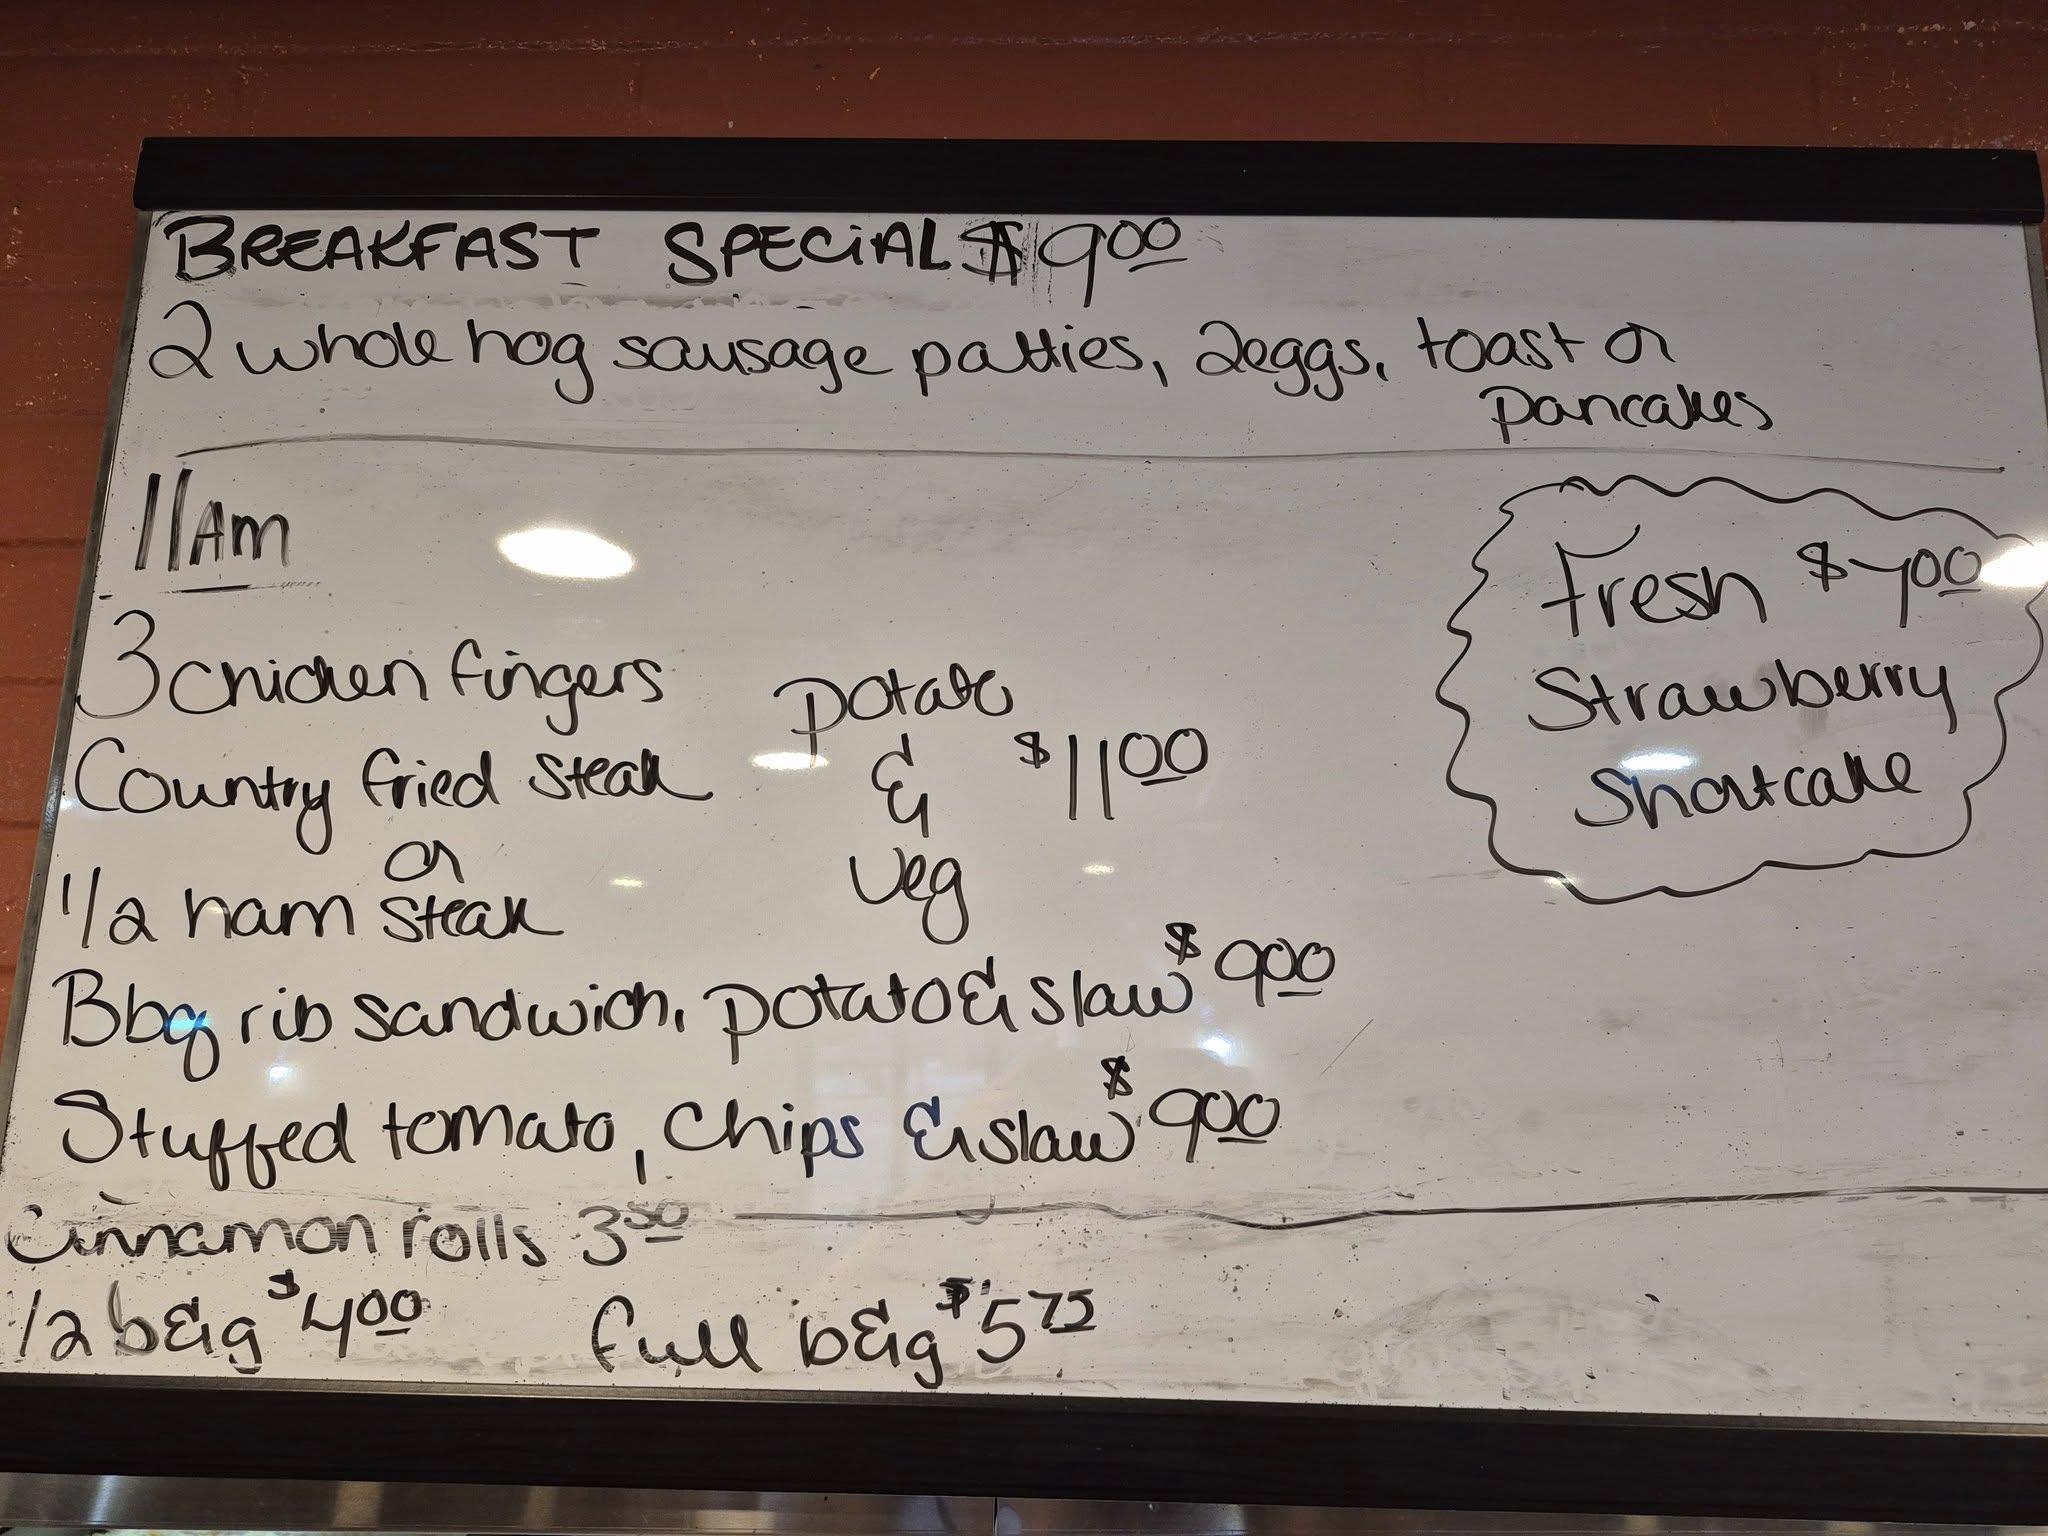 BREAKFAST SPECIAL $9.00
2 whole hog sausage patties, 2eggs, toast or
pancakes
11Am
3 chicken fingers
Country fried steak
or
1/2 ham steak
potato
&
veg
$11.00
Bbq rib sandwich, potato & slaw $9.00
Stuffed tomato, chips & slaw $9.00
Fresh $7.00
Strawberry
Shortcake
Cinnamon rolls 3.50
1/2 b&g $4.00 full b&g $5.75